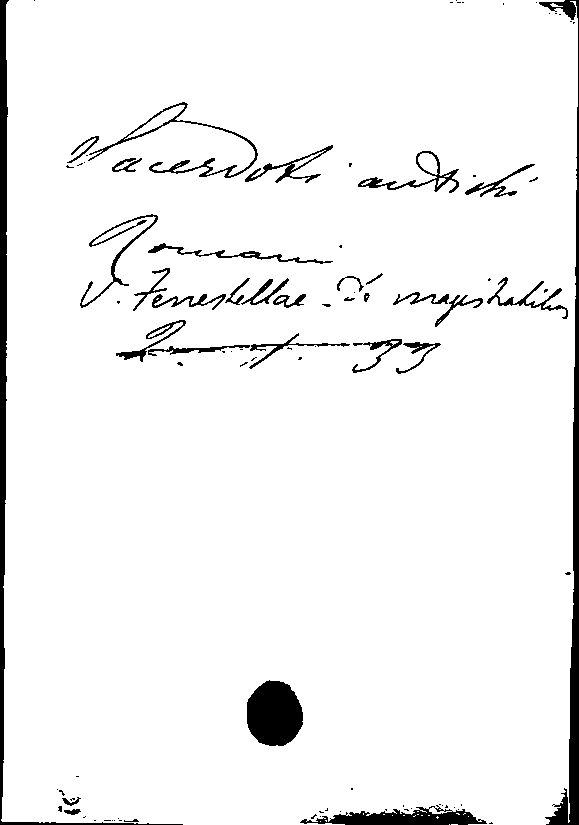 Sacerdoti antichi
Romani
V. Fenestellae - De magistratibus
2. 1. 33